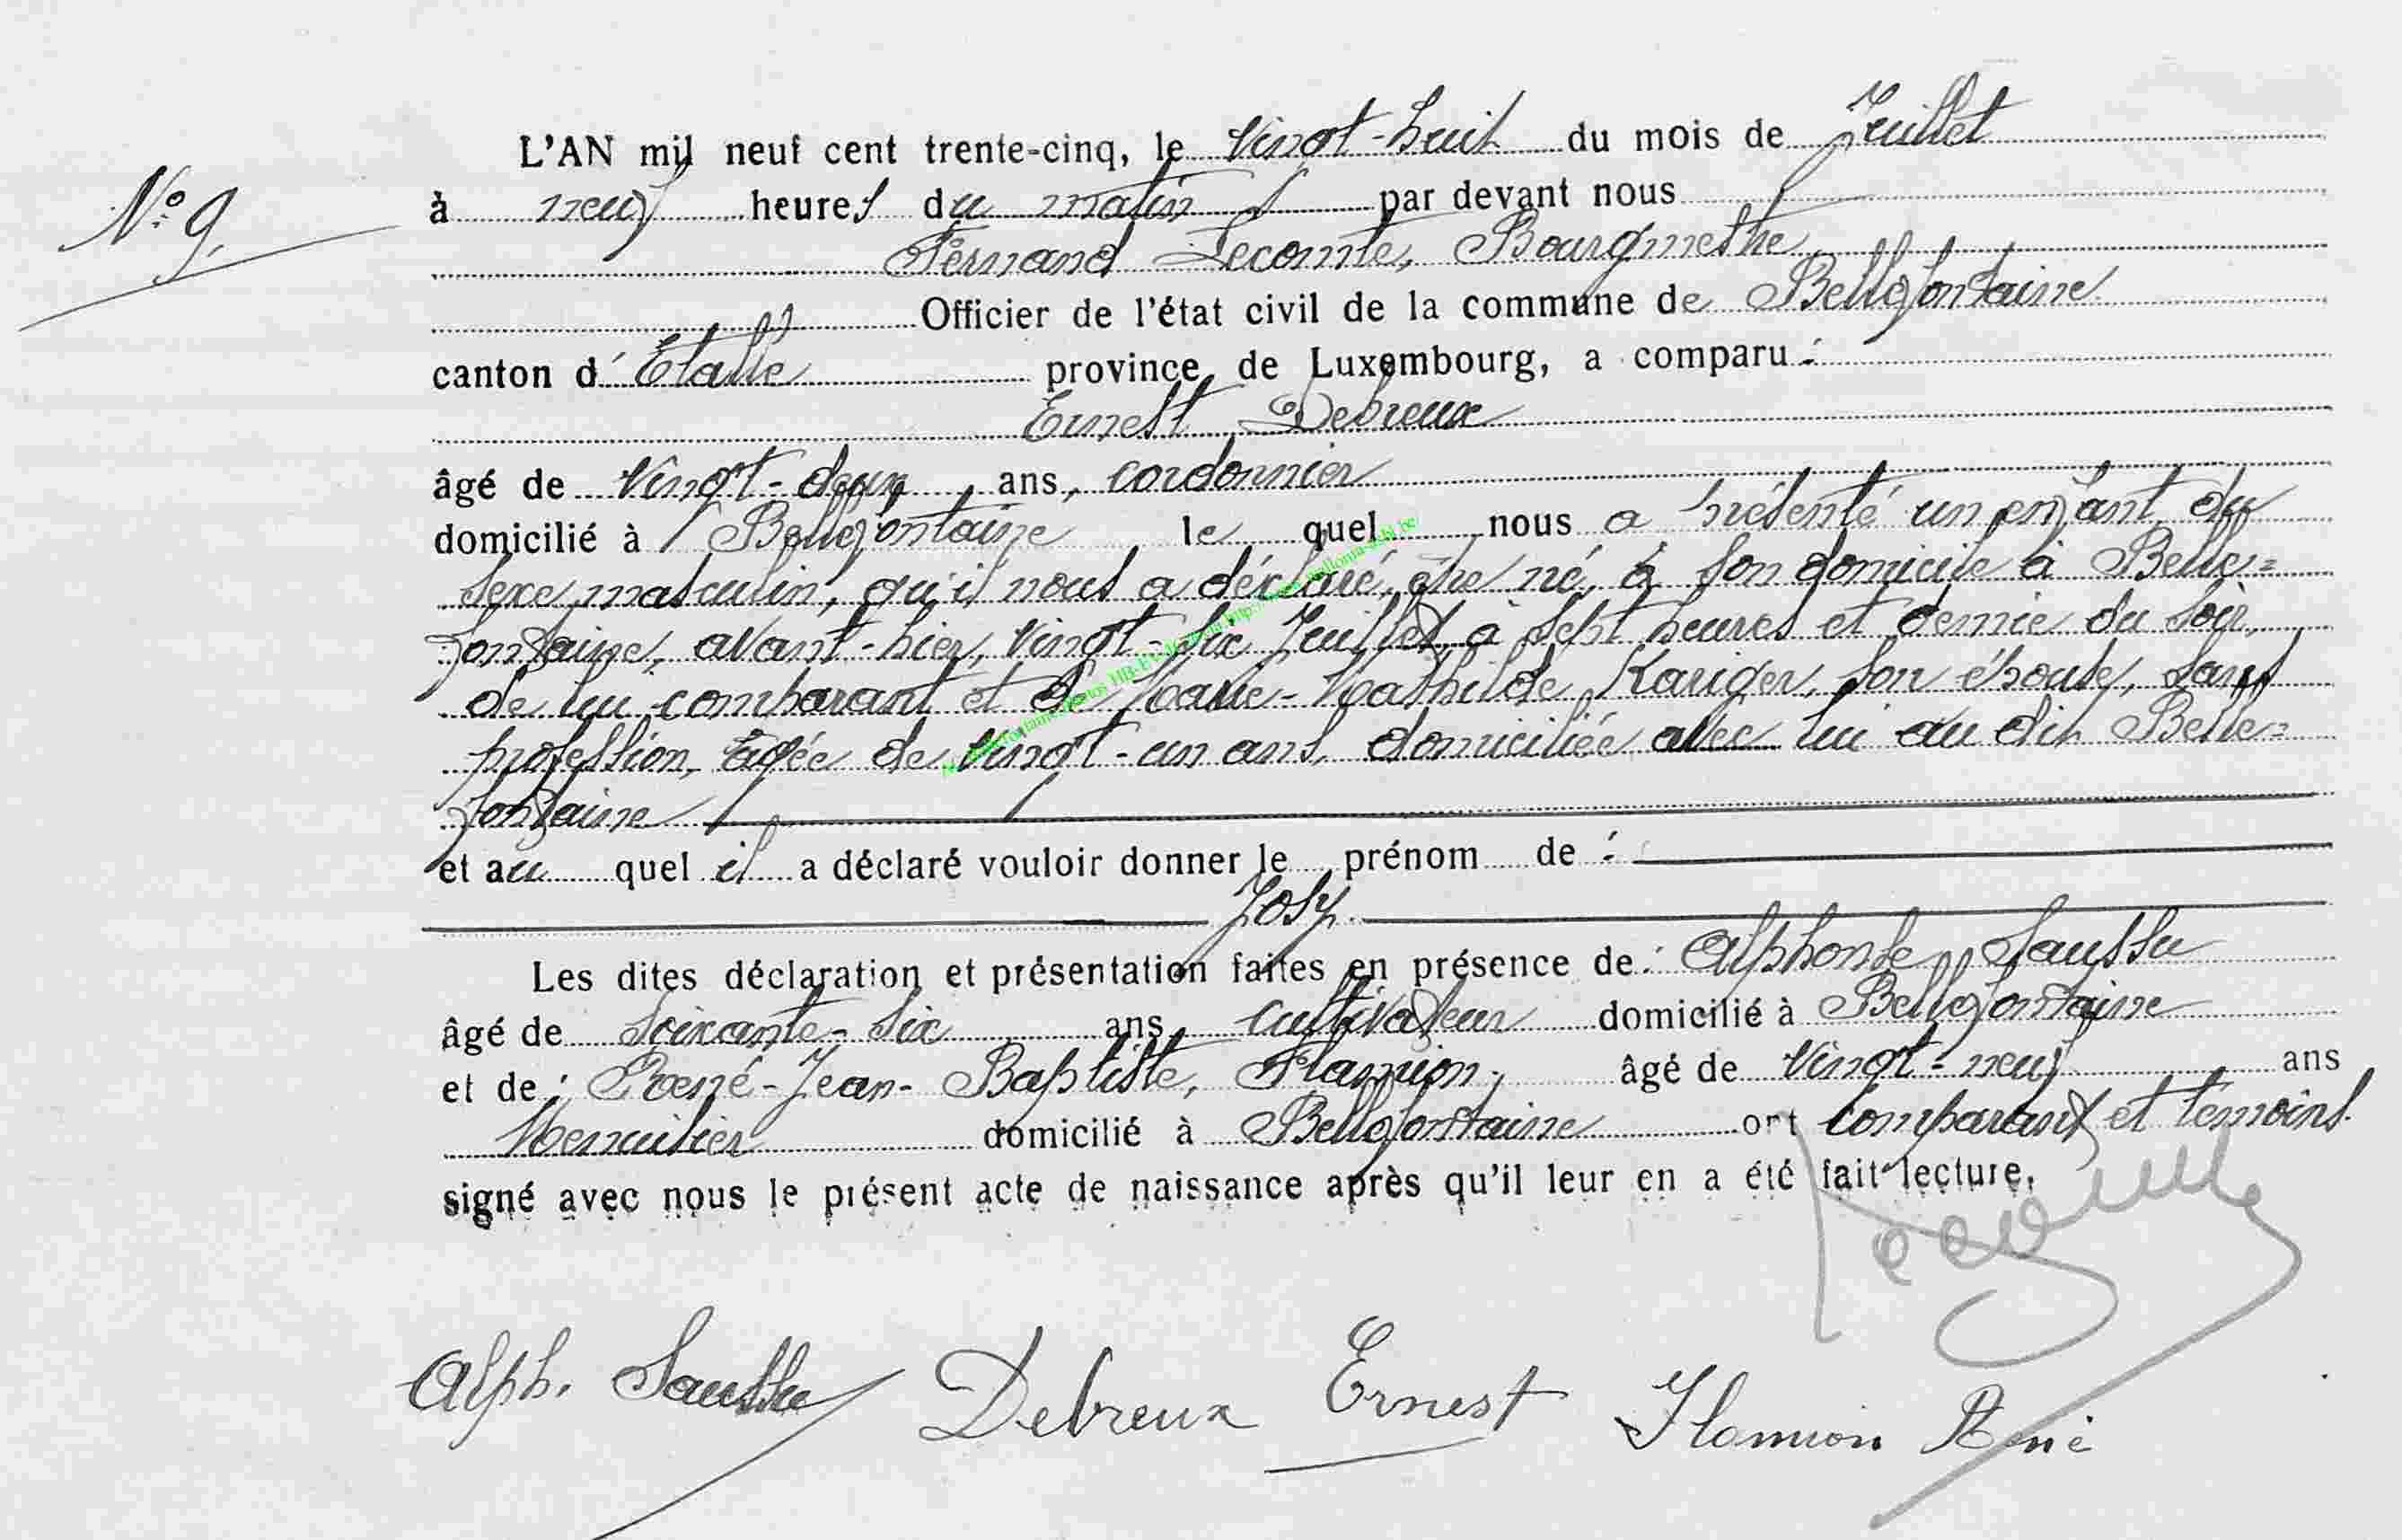 L'AN mil neuf cent trente-cinq, le Vingt-huit du mois de Juillet
N° 9.
à neuf heures du matin par devant nous
Fernand Lecomte, Bourgmestre
Officier de l'état civil de la commune de Bellefontaine
canton d'Etalle province de Luxembourg, a comparu :
Ernest Debreux
âgé de Vingt-deux ans, cordonnier
domicilié à Bellefontaine le quel nous a présenté un enfant du
sexe masculin, qu'il nous a déclaré être né, à son domicile à Belle=
fontaine, avant-hier, vingt-six Juillet, à sept heures et demie du soir,
de lui comparant et de Marie-Mathilde Kariger, son épouse, sans
profession, âgée de vingt-un ans, domiciliée avec lui au dit Belle=
fontaine
et au quel il a déclaré vouloir donner le prénom de :
Josy.
Les dites déclaration et présentation faites en présence de : Alphonse Saussu
âgé de soixante-six ans, cultivateur domicilié à Bellefontaine
et de : René-Jean-Baptiste, Flamion, âgé de Vingt-neuf ans
Menuisier domicilié à Bellefontaine ont comparant et témoins.
signé avec nous le présent acte de naissance après qu'il leur en a été fait lecture.
Lecomte
Alph. Saussu Debreux Ernest Flamion René